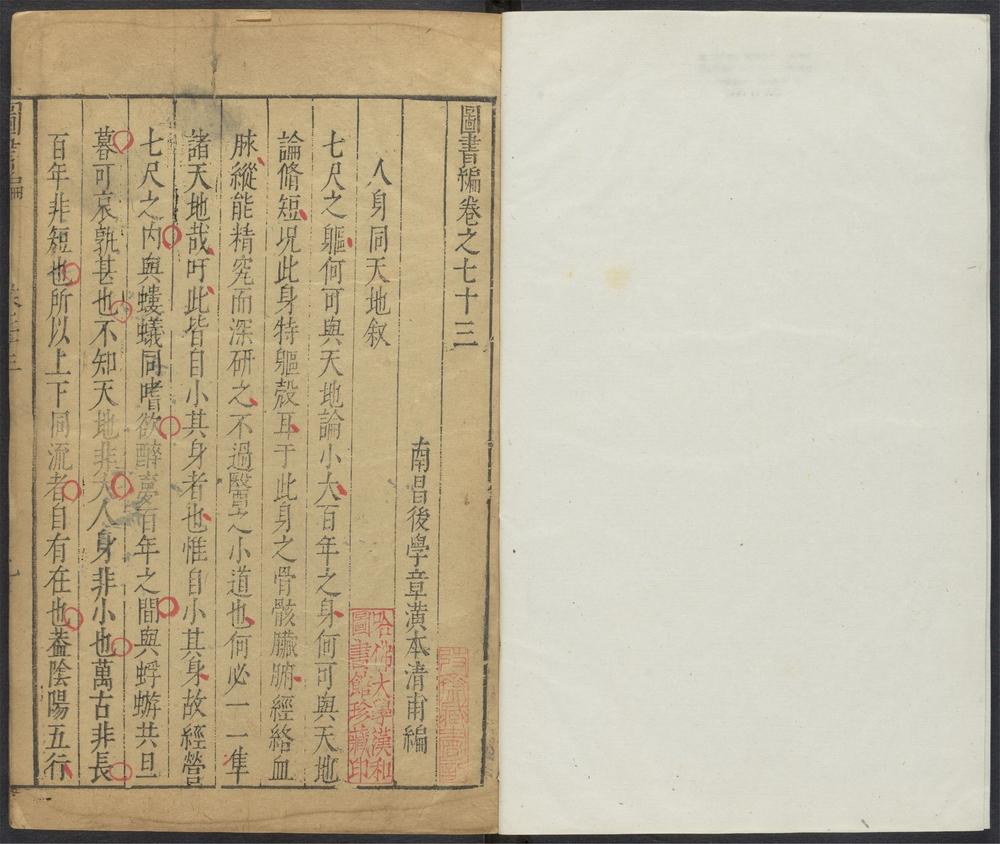 圖書編卷之七十三
南昌後學章潢本清甫編
人身同天地叙
七尺之軀何可與天地論小大百年之身何可與天地
論脩短况此身特軀殼耳于此身之骨骸臟腑經絡血
脉縱能精究而深研之不過醫之小道也何必一一隼
諸天地哉吁此皆自小其身者也惟自小其身故經營
七尺之内與螻蟻同嗜欲醉夢百年之間與蜉蝣共旦
暮可哀孰甚也不知天地非大人身非小也萬古非長
百年非短也所以上下同流者自有在也葢陰陽五行
圖書編
哈佛大學漢和
圖書館珍藏印